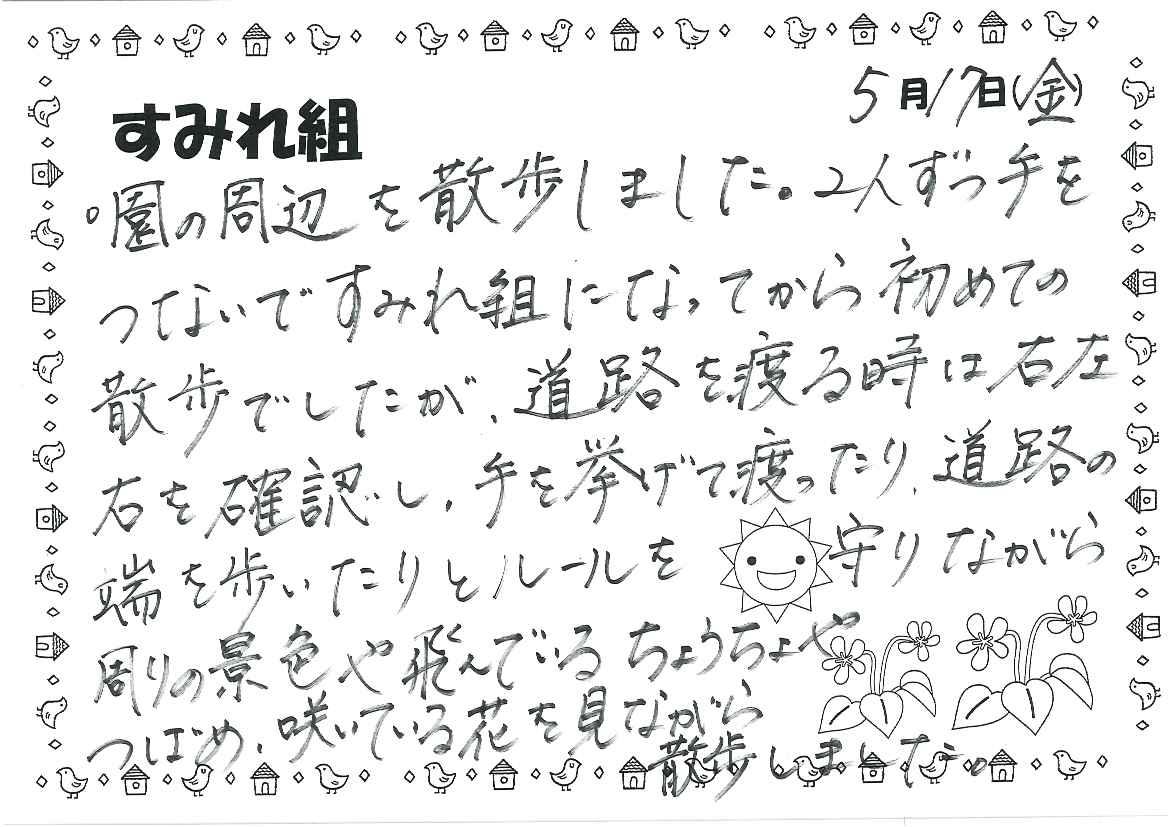 5月17日(金)
すみれ組
○園の周辺を散歩しました。2人ずつ手を
つないですみれ組になってから初めての
散歩でしたが、道路を渡る時は右左
右を確認し、手を挙げて渡ったり、道路の
端を歩いたりとルールを守りながら
周りの景色や飛んでいるちょうちょや
つばめ、咲いている花を見ながら
散歩しました。